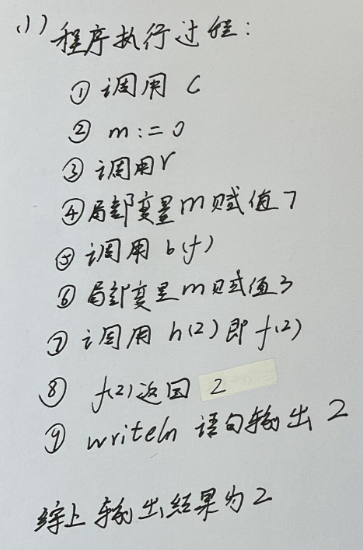 (1) 程序执行过程:
① 调用 C
② m := 0
③ 调用 r
④ 局部变量m赋值7
⑤ 调用 b(f)
⑥ 局部变量m赋值3
⑦ 调用 h(2) 即 f(2)
⑧ f(2)返回 2
⑨ writeln 语句输出 2
综上输出结果为2